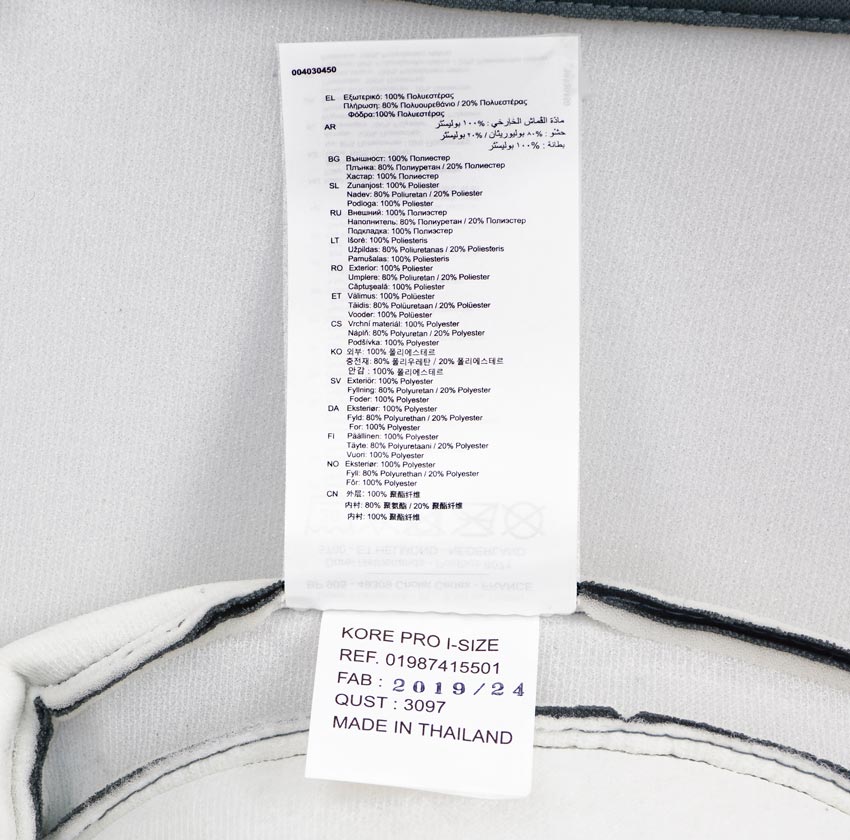 004030450
EL Εξωτερικό: 100% Πολυεστέρας
Πλήρωση: 80% Πολυουρεθάνιο / 20% Πολυεστέρας
Φόδρα:100% Πολυεστέρας
AR مادّة القماش الخارجي : ١٠٠% بوليستر
حشو : ٨٠% بوليوريثان / ٢٠% بوليستر
بطانة : ١٠٠% بوليستر
BG Външност: 100% Полиестер
Плънка: 80% Полиуретан / 20% Полиестер
Хастар: 100% Полиестер
SL Zunanjost: 100% Poliester
Nadev: 80% Poliuretan / 20% Poliester
Podloga: 100% Poliester
RU Внешний: 100% Полиэстер
Наполнитель: 80% Полиуретан / 20% Полиэстер
Подкладка: 100% Полиэстер
LT Išorė: 100% Poliesteris
Užpildas: 80% Poliuretanas / 20% Poliesteris
Pamušalas: 100% Poliesteris
RO Exterior: 100% Poliester
Umplere: 80% Poliuretan / 20% Poliester
Căptușeală: 100% Poliester
ET Välimus: 100% Polüester
Täidis: 80% Polüuretaan / 20% Polüester
Vooder: 100% Polüester
CS Vrchní materiál: 100% Polyester
Náplň: 80% Polyuretan / 20% Polyester
Podšívka: 100% Polyester
KO 외부: 100% 폴리에스테르
충전재: 80% 폴리우레탄 / 20% 폴리에스테르
안감 : 100% 폴리에스테르
SV Exteriör: 100% Polyester
Fyllning: 80% Polyuretan / 20% Polyester
Foder: 100% Polyester
DA Eksteriør: 100% Polyester
Fyld: 80% Polyurethan / 20% Polyester
For: 100% Polyester
FI Päällinen: 100% Polyester
Täyte: 80% Polyuretaani / 20% Polyester
Vuori: 100% Polyester
NO Eksteriør: 100% Polyester
Fyll: 80% Polyurethan / 20% Polyester
Fôr: 100% Polyester
CN 外层: 100% 聚酯纤维
内村: 80% 聚氨酯 / 20% 聚酯纤维
内村: 100% 聚酯纤维
5700 - ET HELMOND - NEDERLAND
BP 905 - 49309 Cholet Cedex - FRANCE
KORE PRO I-SIZE
REF. 01987415501
FAB : 2019/24
QUST : 3097
MADE IN THAILAND